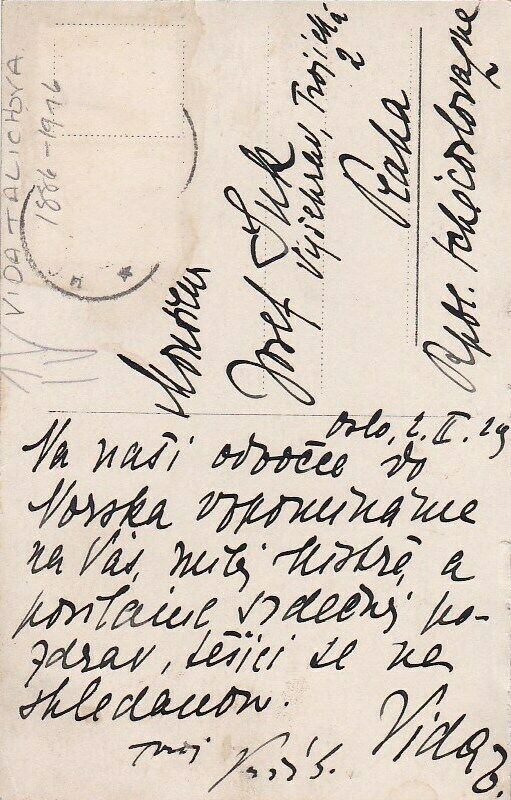 VIDA TALICHOVA
1886-1916
Monsieur
Josef Suk
Vyšehrad, Trojická
2
Praha
Rpbl. tchécoslovaque
Oslo, 2. II. 29
Na naší odbočce do
Norska vzpomínáme
na Vás, milý Mistře, a
posíláme srdečný po-
zdrav, těšíce se na
shledanou.
Tvůj
Vida